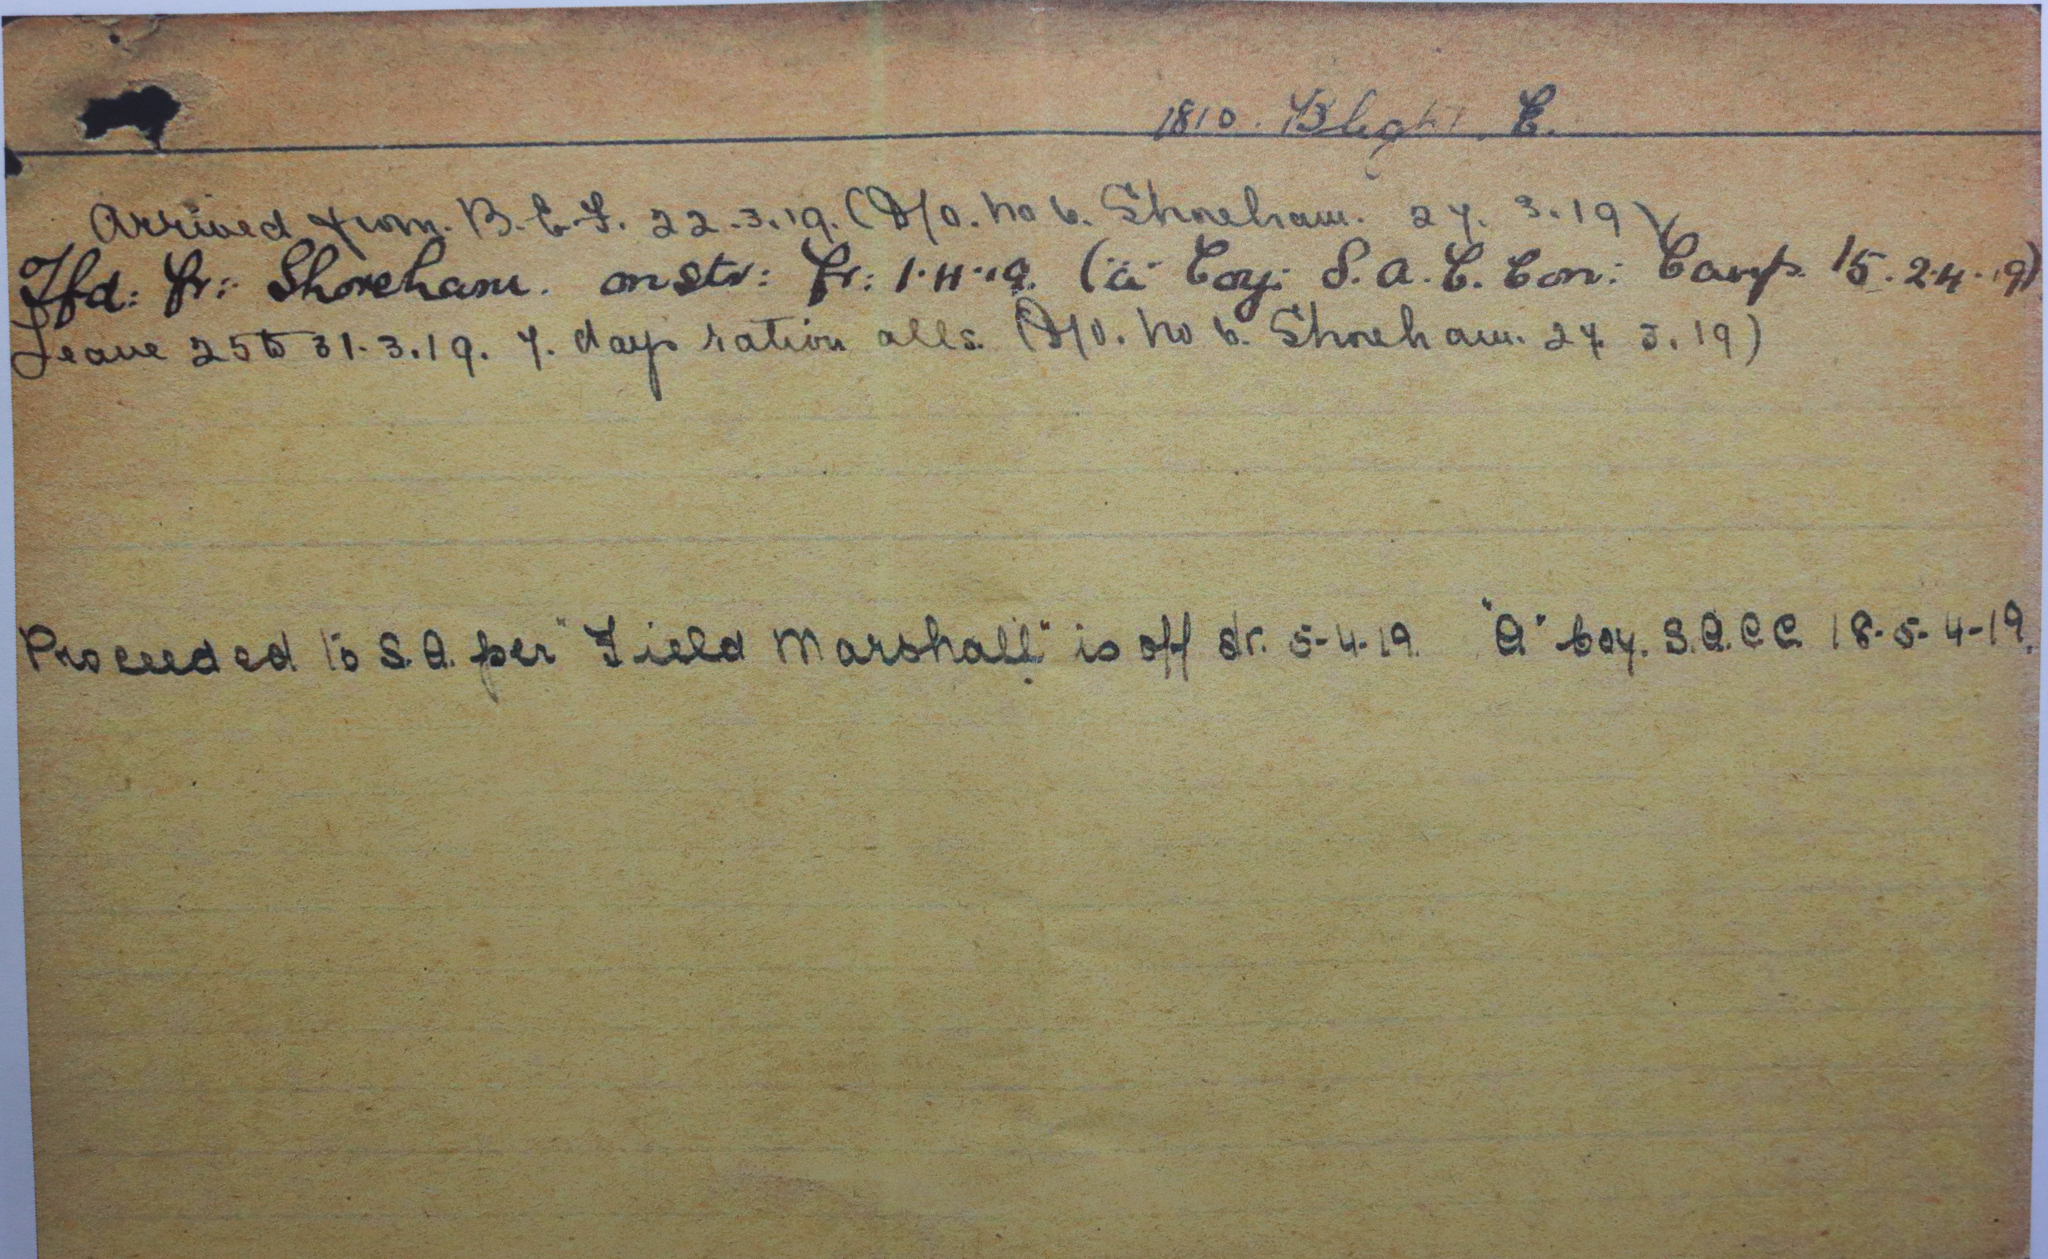 1810. Blight. E.
Arrived from. B.E.F. 22.3.19. (D/O. No 6. Shoreham. 27. 3.19)
Tfd: fr: Shoreham. on str: fr: 1.4.19. ("a" Coy: S.A.C. Con: Camp. 15. 2.4.19)
Leave 25 to 31.3.19. 7. days ration alls. (D/O. No 6. Shoreham. 27 3.19)
Proceeded to S.A. per "Field Marshall" is off str. 5-4-19. "A" Coy. S.A.C.C. 18-5-4-19.